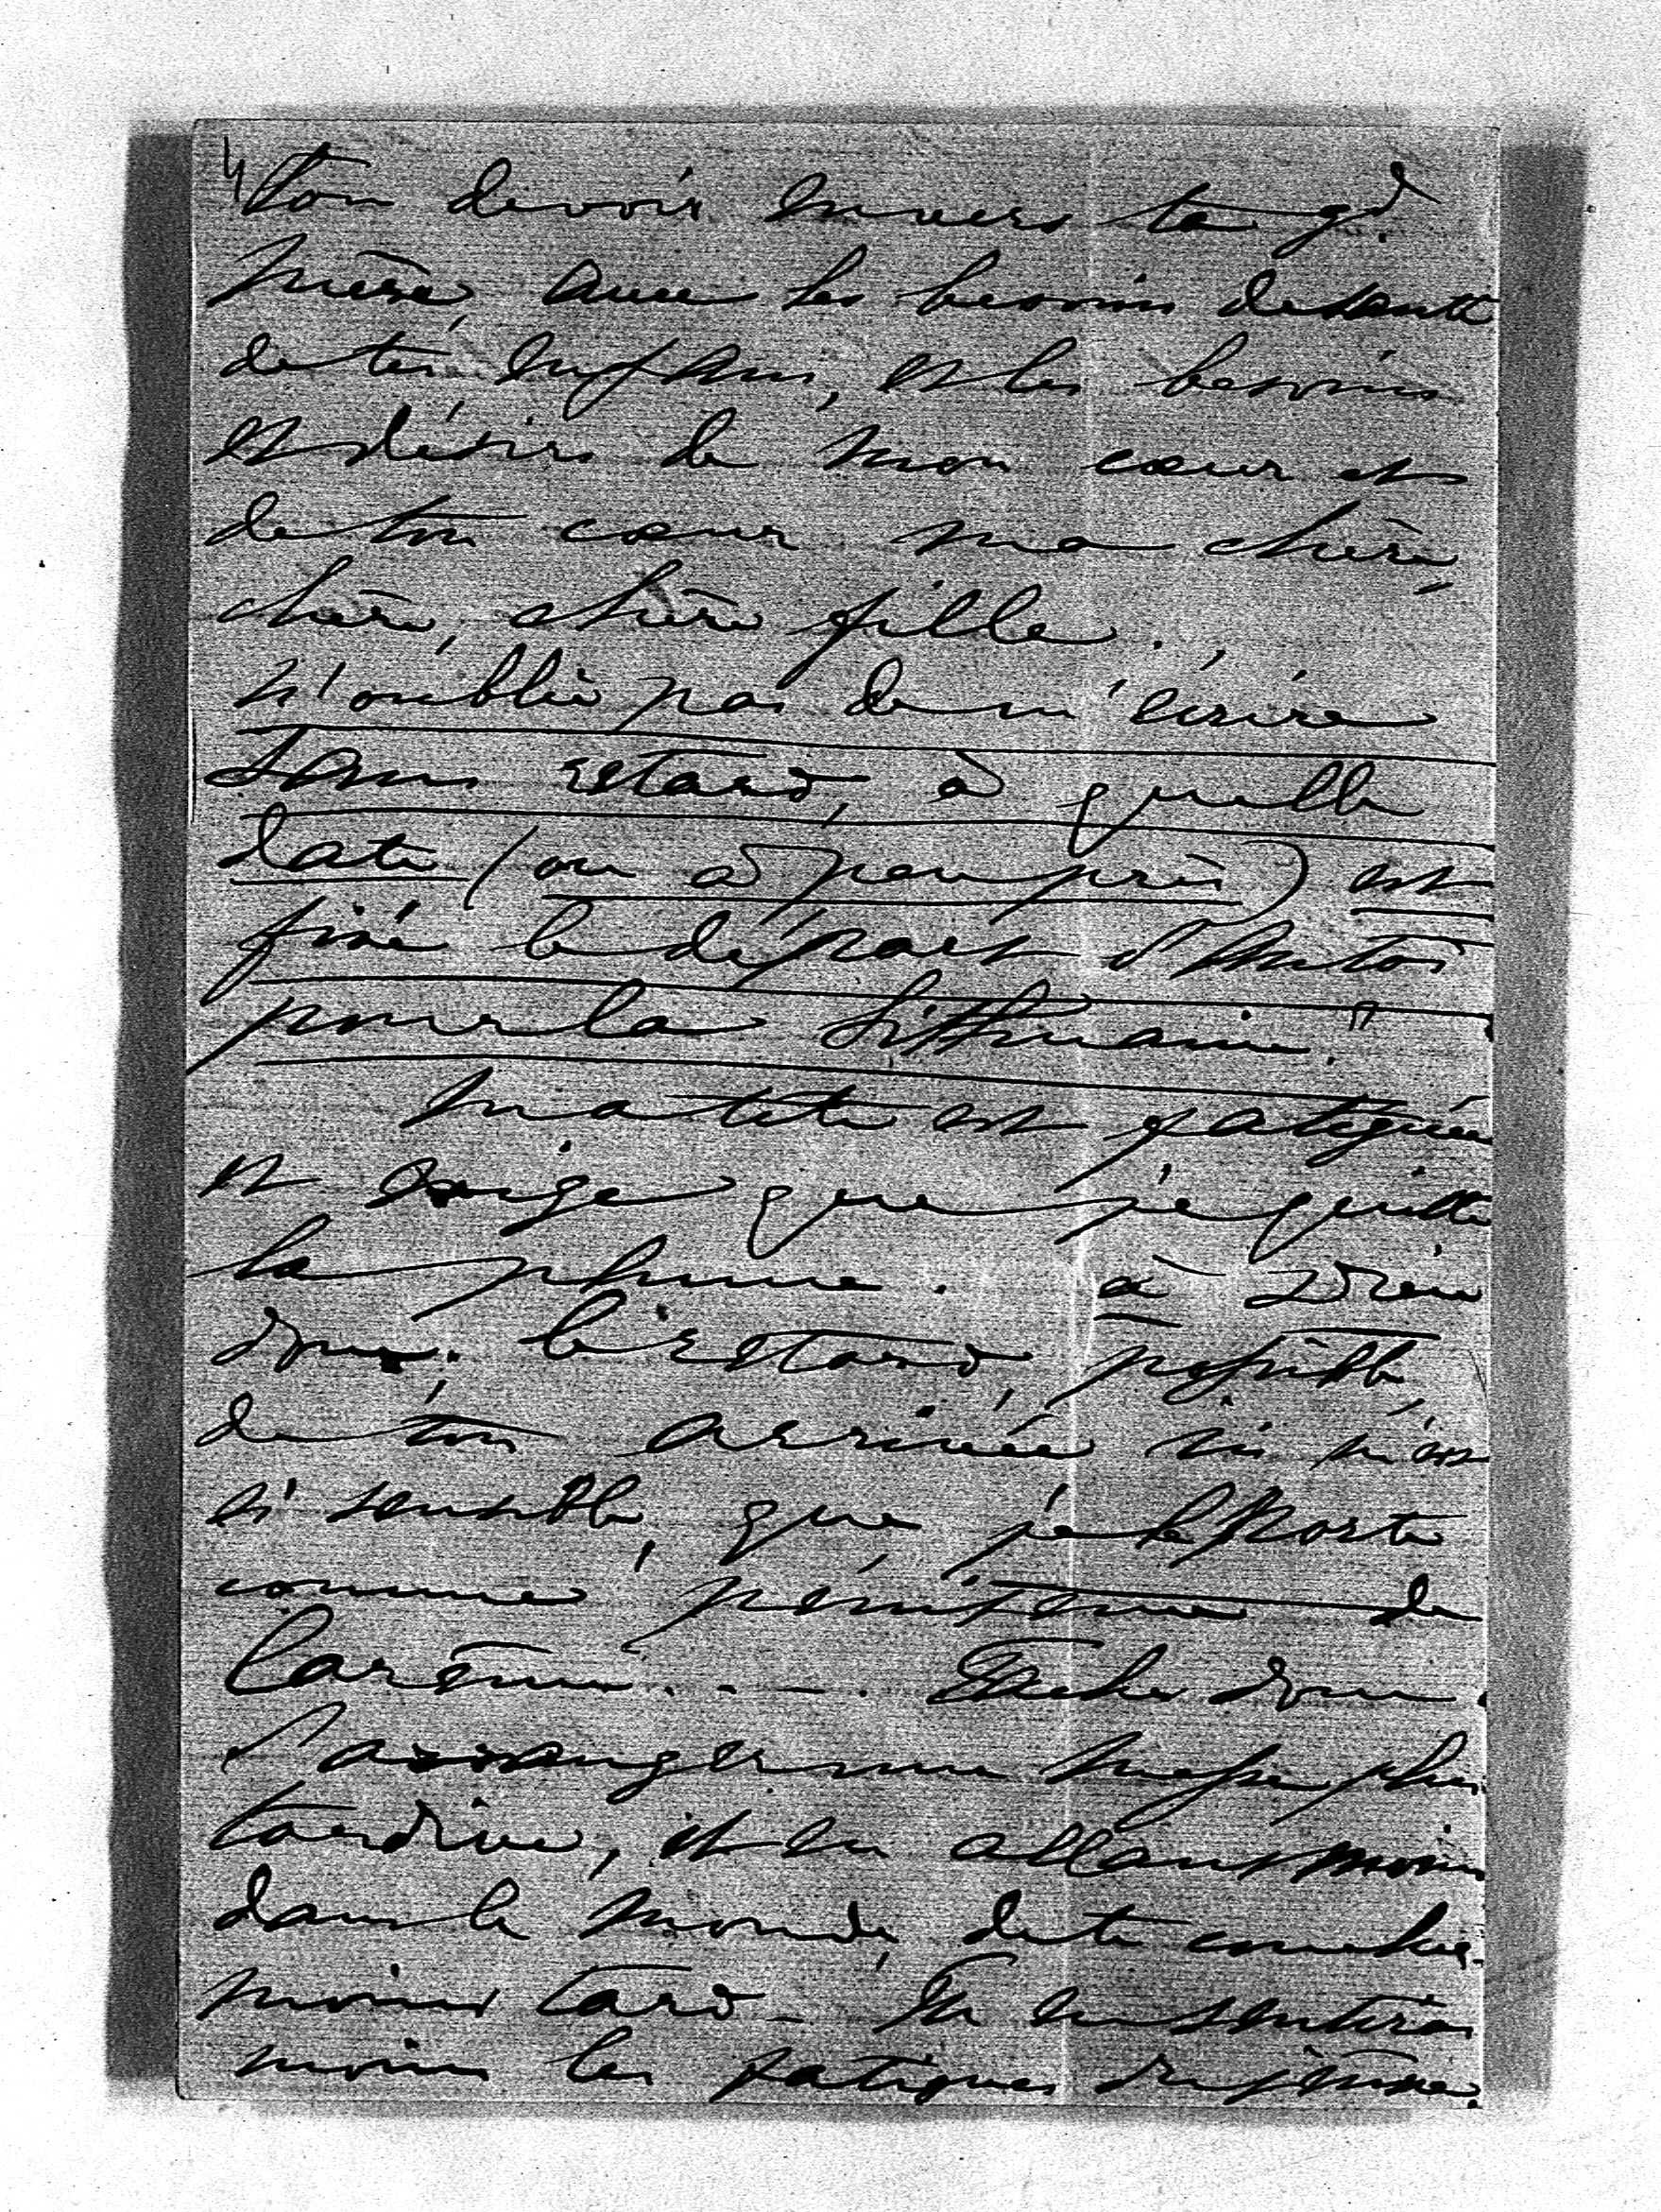 4 ton devoir envers ta gd.
mère, avec les besoins de santé
de tes enfans, et les besoins
et désirs de mon cœur et
de ton cœur ma chère,
chère, chère fille.
N'oublie pas de m'écrire
sans retard, à quelle
date (ou à peu près) est
fixé le départ d'Antoi
pour la Lithuanie."
Ma tête est fatiguée
et exige que je quitte
la plume. à Dieu
donc; le retard, possible,
de ton arrivée ici m'est
si sensible, que je le porte
comme pénitence de
Carême. . . — . Tâche donc
d'arranger une messe plus
tardive, et en allant moins
dans le monde, de te coucher
moins tard — Tu en sentiras
moins les fatigues du jeûne.